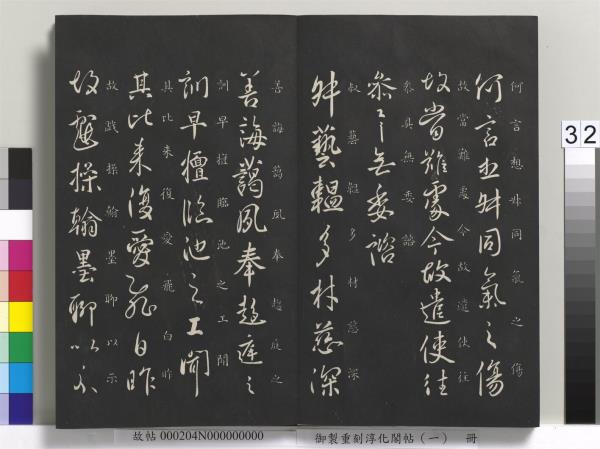 何言想姊同氣之傷
何言想姊同氣之傷
故當難處今故遣使往
故當難處今故遣使往
參具無委諮
參〻無委諮
叔藝韞多材慈深
叔藝韞多材慈深
善誨藹夙奉趨庭之
善誨藹夙奉趨庭之
訓早擅臨池之工聞
訓早擅臨池之工聞
其比來復愛飛白昨
其比來復愛飛白昨
故戲操翰墨聊以示
故戲操翰墨聊以示
32
故帖 000204N000000000
御製重刻淳化閣帖(一) 冊